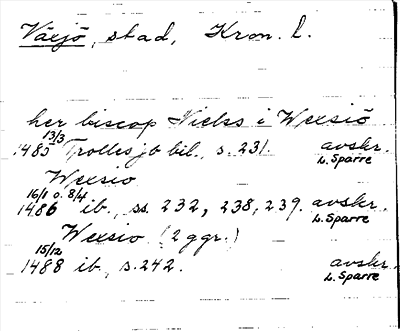 Växjö, stad, Kron. l.
her biscop Niclss i Wexsiö
13/3
1485 Trolles jb bil., s. 231. avskr.
L. Sparre
Wexsio
16/1 o. 8/4
1486 ib., ss. 232, 238, 239. avskr.
L. Sparre
Wexsio (2 ggr.)
15/12
1488 ib., s. 242. avskr.
L. Sparre